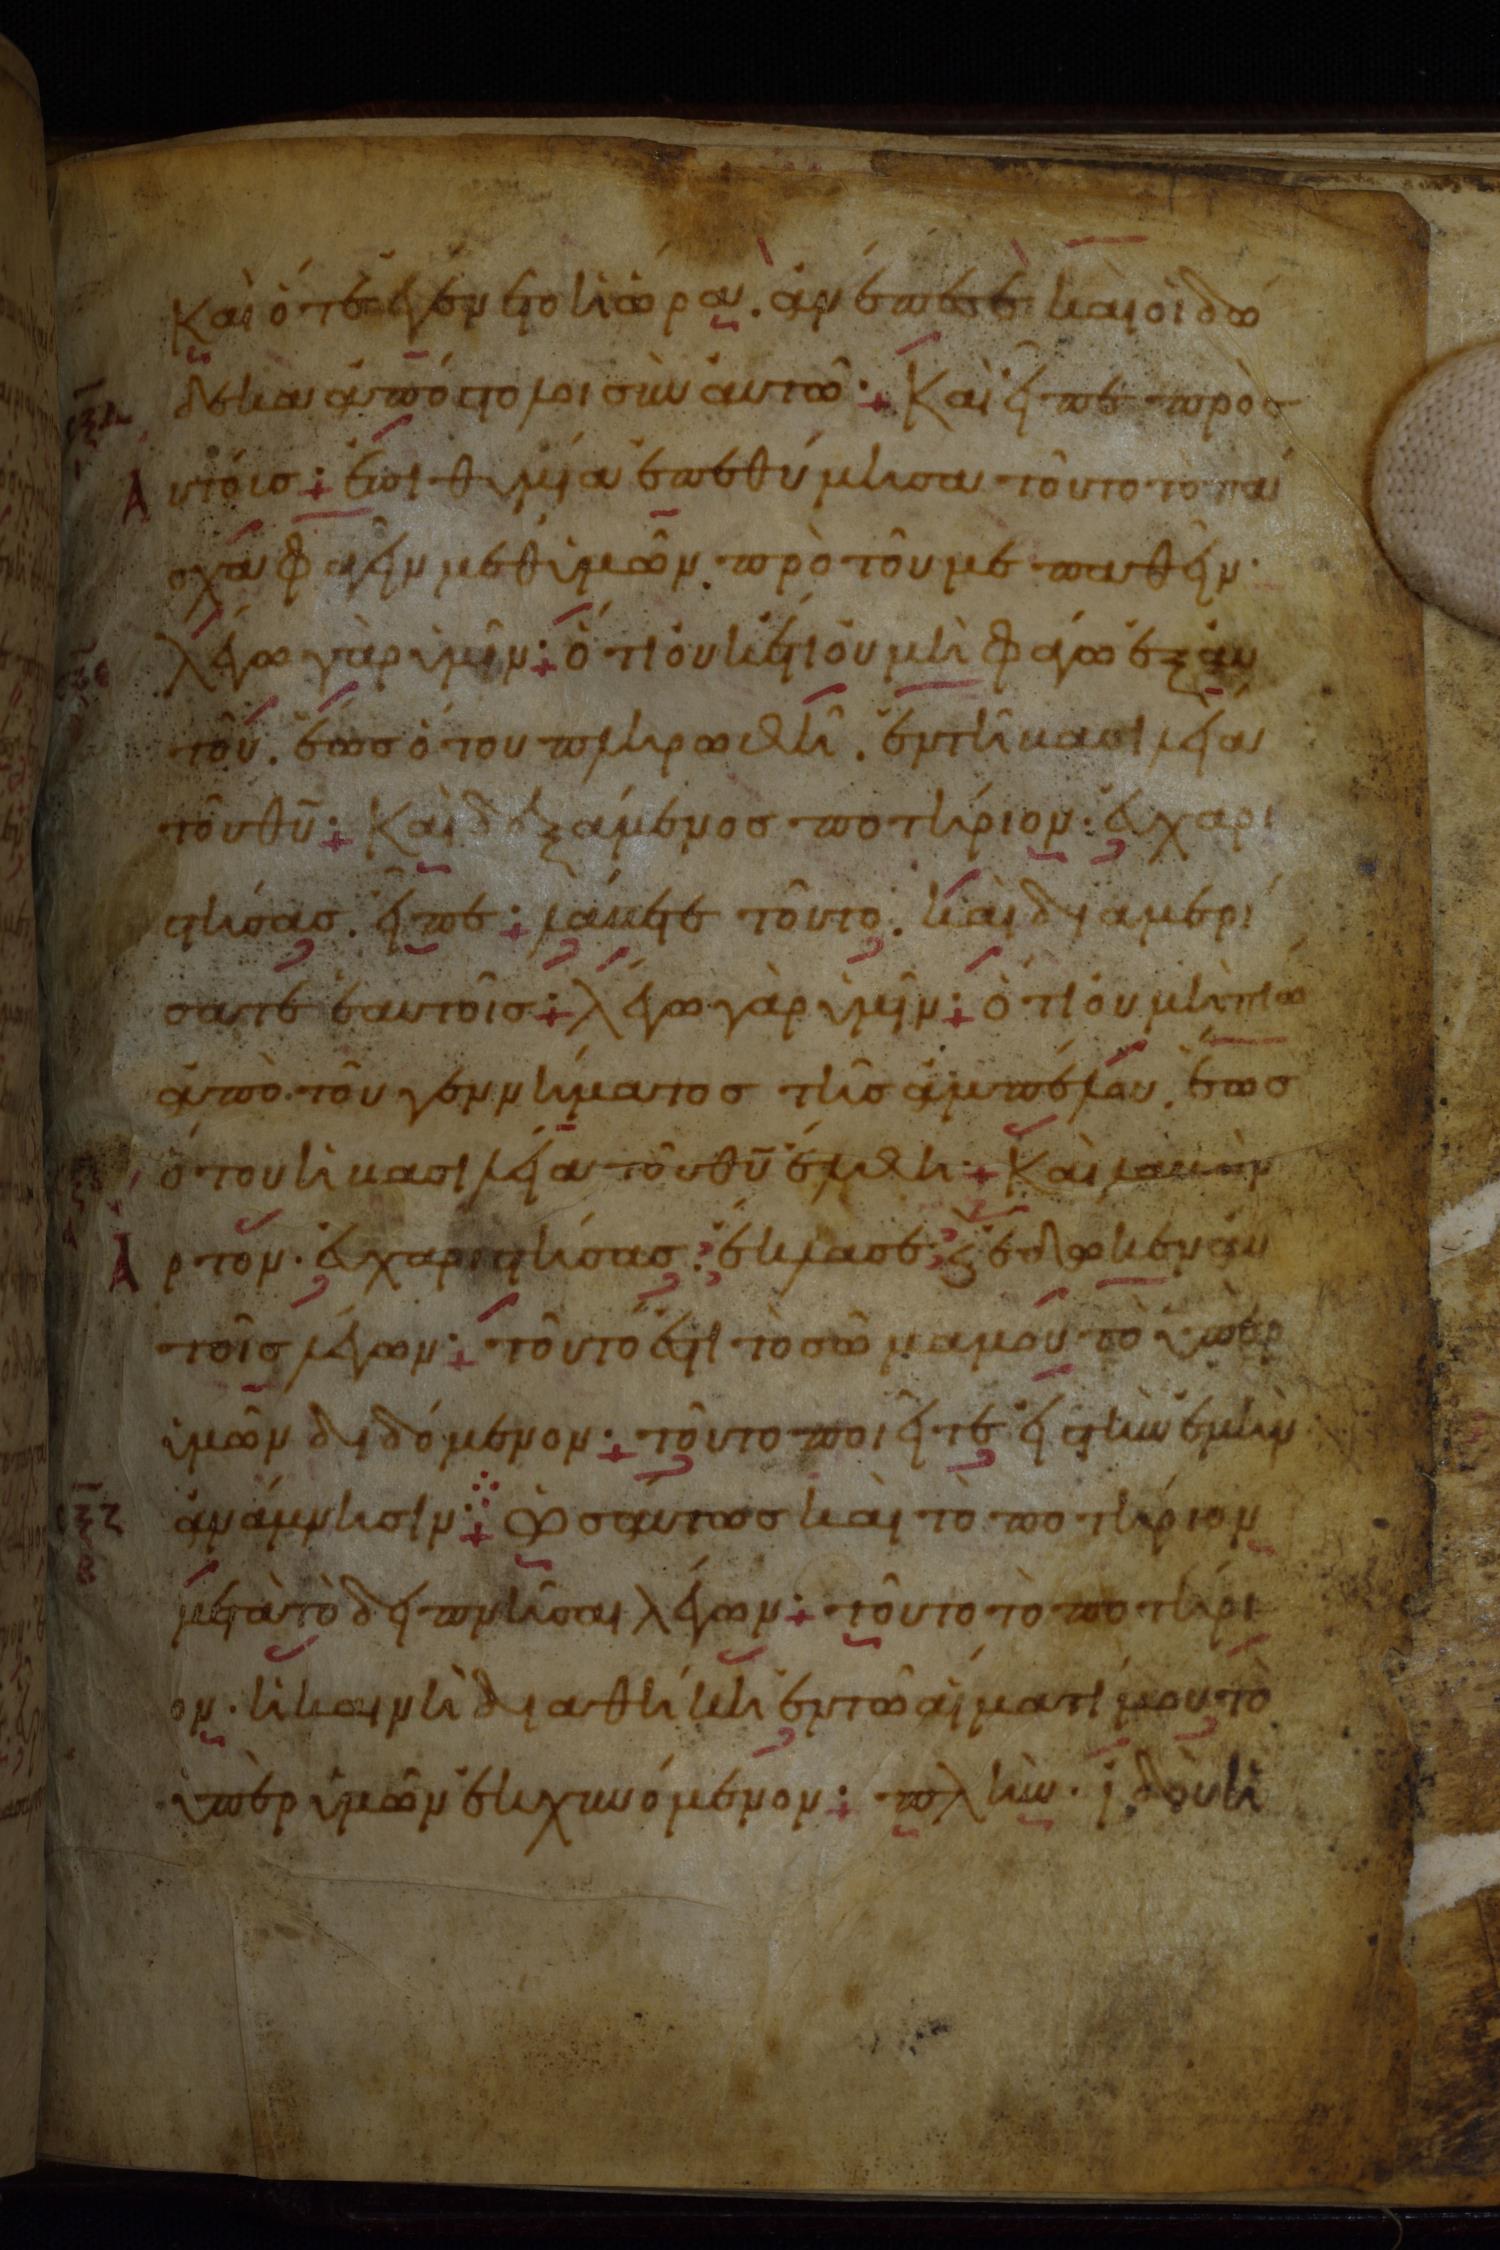 Καὶ ὅτε ἐγένετο ἡ ὥρα. ἀνέπεσε καὶ οἱ δώ
δεκα ἀπόστολοι σὺν αὐτῶ· Καὶ εἶπε πρὸς
αυτούς· ἐπιθυμία ἐπεθύμησα τοῦτο τὸ πά
σχα φαγεῖν μεθ ὑμῶν πρὸ τοῦ με παθεῖν·
λέγω γὰρ ὑμῖν· ὅτι οὐκέτι οὐ μὴ φάγω ἐξ αὐ
τοῦ. ἕως ὅτου πληρωθῆ. ἐν τῆ βασιλεία
τοῦ θῦ· Καὶ δεξάμενος ποτήριον· εὐχαρι
στήσας. εἶπε· λάβετε τοῦτο. καὶ διαμερί
σατε ἑαυτοῖς· λέγω γὰρ ὑμῖν· ὅτι οὐ μὴ πίω
ἀπὸ τοῦ γεννήματος τῆς ἀμπέλου. ἕως
ὅτου ἡ βασιλεία τοῦ θῦ ἔλθη· Καὶ λαβὼν
ἄρτον· εὐχαριστήσας. ἔκλασε. ϛ ἔδωκεν αὐ
τοῖς λέγων· τοῦτό ἐστι τὸ σῶμα μου τὸ ὑπὲρ
ὑμῶν διδόμενον· τοῦτο ποιεῖτε εἰς τὴν ἐμὴν
ἀνάμνησιν· Ὡσαύτως καὶ τὸ ποτήριον
μετὰ τὸ δειπνῆσαι λέγων· τοῦτο τὸ ποτήρι
ον· ἡ καινὴ διαθήκη ἐν τῶ αἵματί μου τὸ
ὑπὲρ ὑμῶν ἐκχυνόμενον· πλὴν· ἰδοὺ ἡ